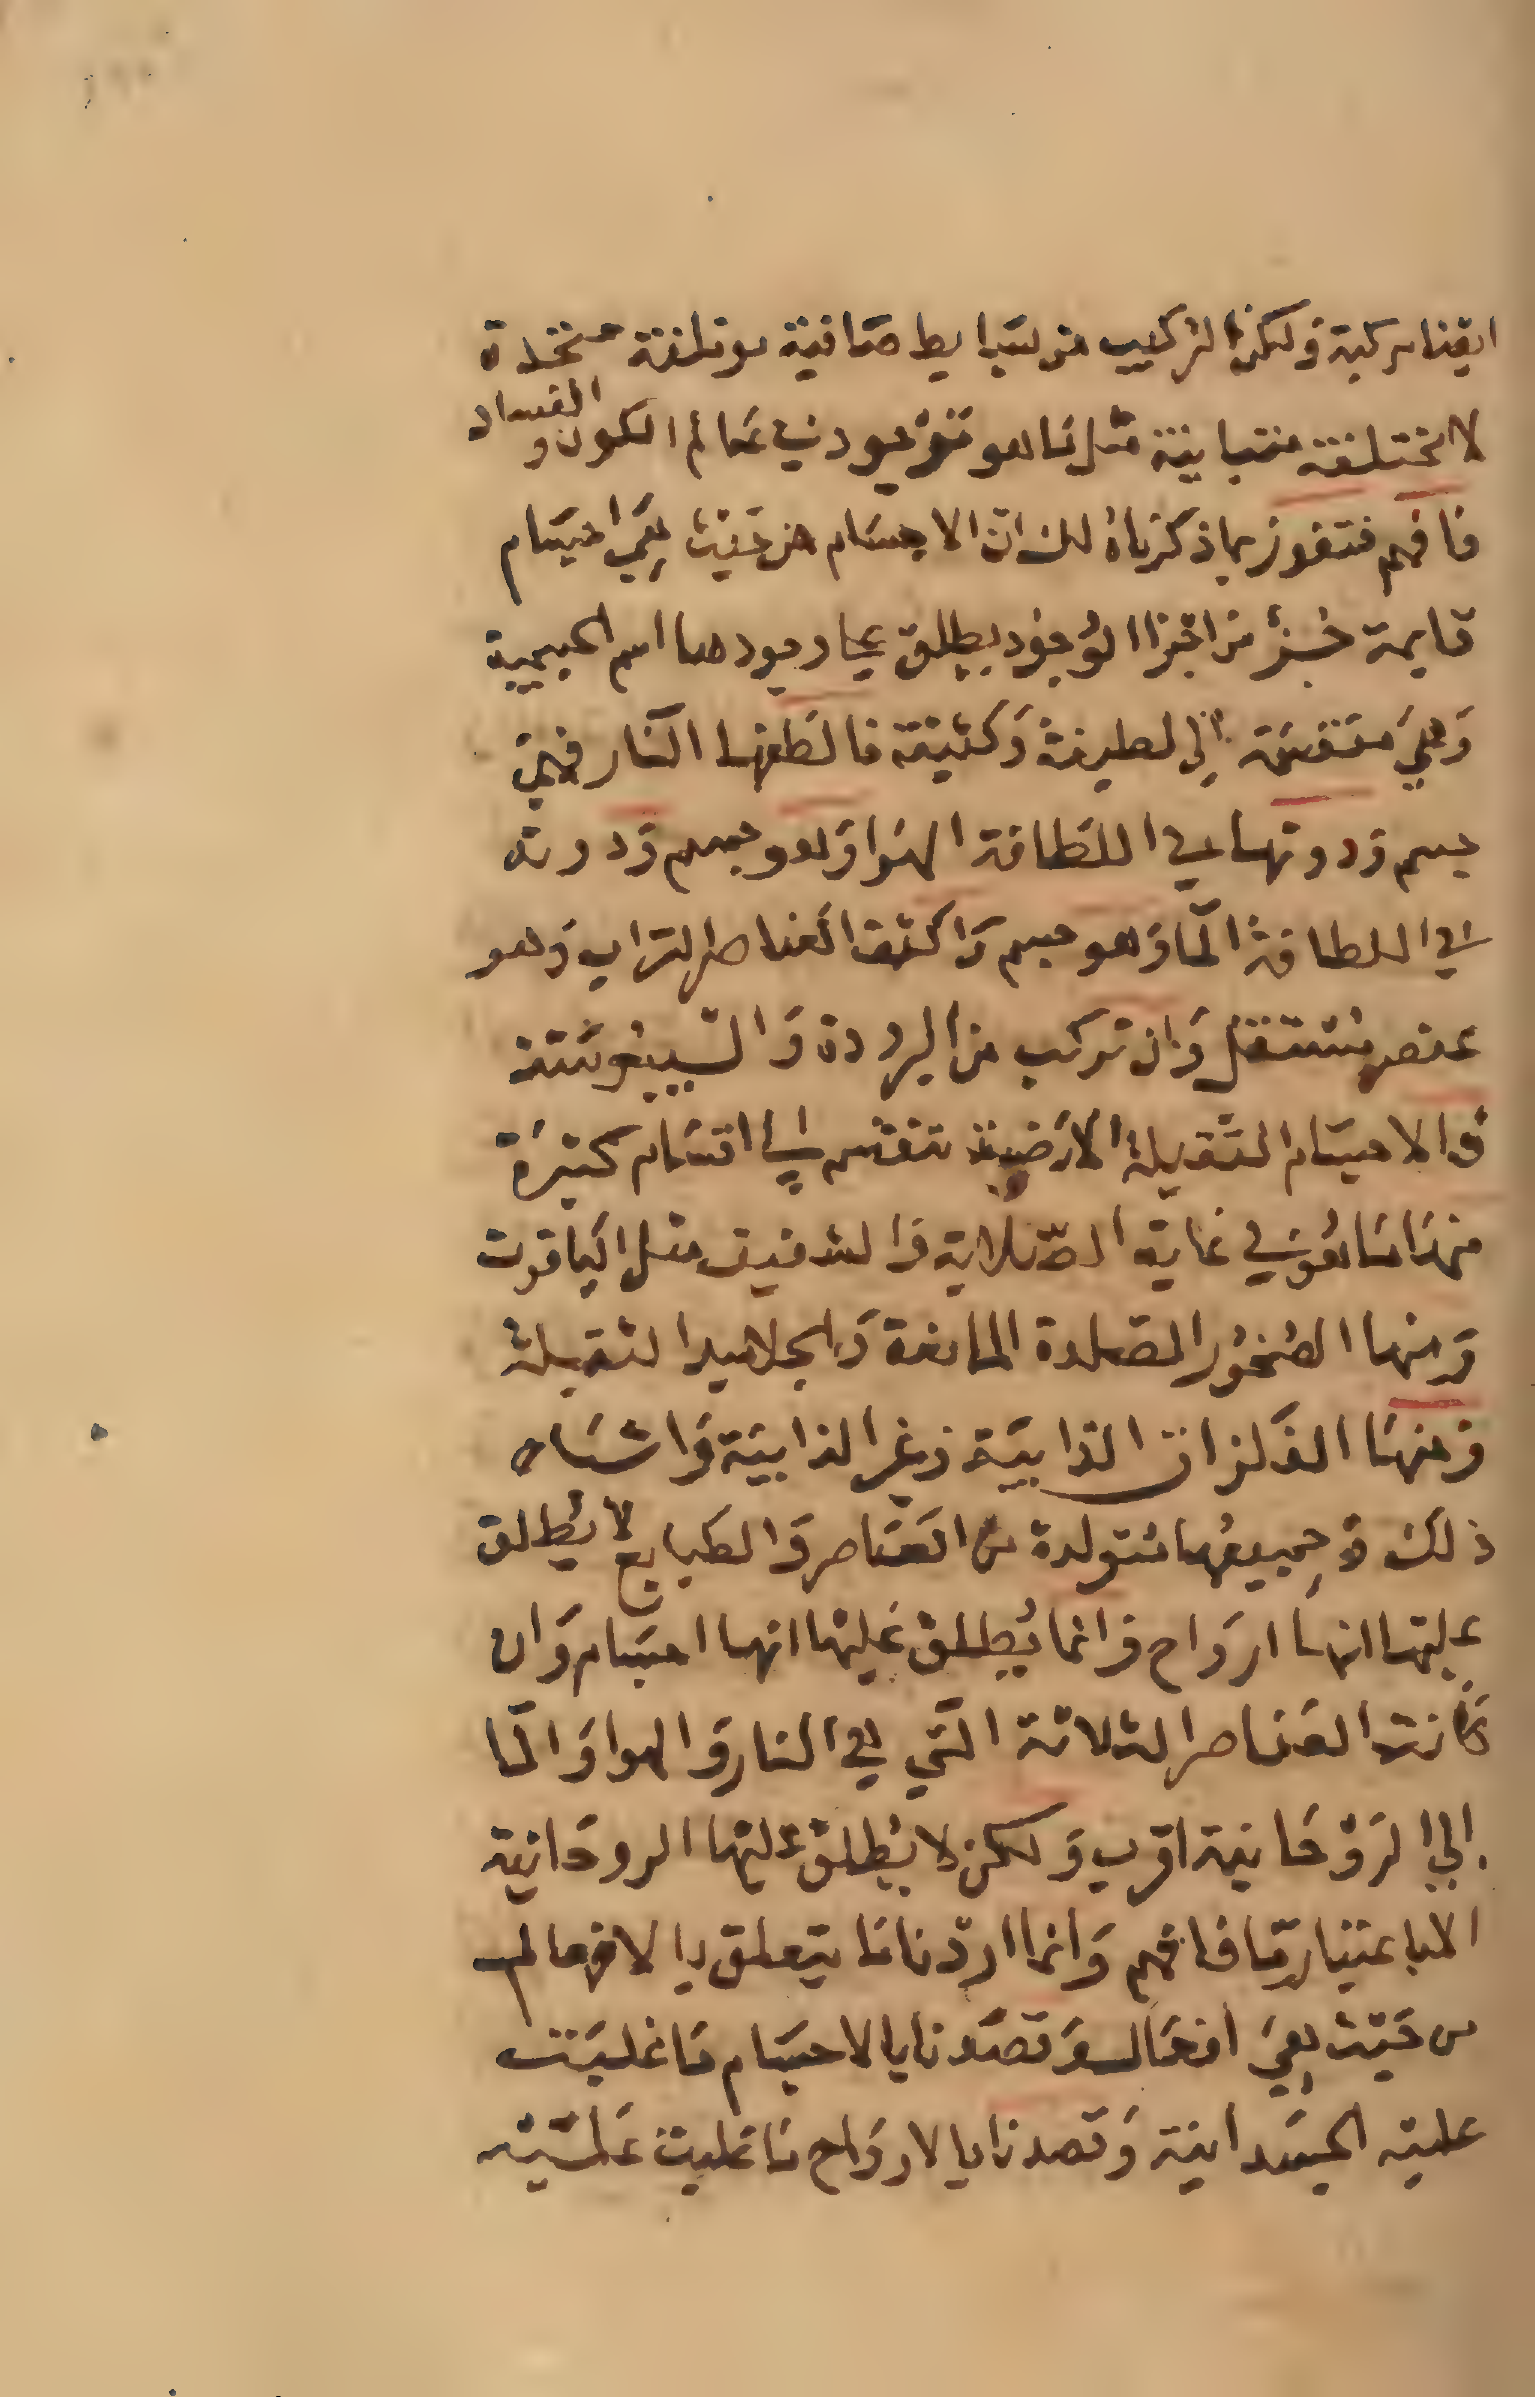 ايضا مركبة ولكن التركيب من بسايط صافية موتلفة متحدة
لا مختلفة متباينة مثل ما هو موجود في عالم الكون والفساد
فافهم فتفوز بما ذكرناه لك ان الاجسام من حيث هي اجسام
قايمة جزء من اجزا الوجود يطلق على وجودها اسم الجسمية
وهي منقسمة إلى لطيفة وكثيفة فالطفها النار فهي
جسم ودونها في اللطافة الهوا وهو جسم ودونه
في اللطافة الما وهو جسم واكثف العناصر التراب وهو
عنصر مستقل وان تركب من البرودة واليبوسة
والاجسام الثقيلة الارضية تنقسم إلى اقسام كثيرة
فمنها ما هو في غاية الصلابة والشفيف مثل الياقوت
ومنها الصخور الصلدة المانعة والجلاميد الثقيلة
ومنها الفلزات الذايبة وغير الذايبة واشباه
ذلك وجميعها متولدة من العناصر والطبايع لا يطلق
عليها انها ارواح وانما يُطلق عليها انها اجسام وان
كانت العناصر الثلاثة التي هي النار والهوا والما
إلى الروحانية اقرب ولكن لا يُطلق عليها الروحانية
الا باعتبار ما فافهم وانما اردنا ما يتعلق بالافعال
من حيث هي افعال وقصدنا بالاجسام ما غلبت
عليه الجسدانية وقصدنا بالارواح ما غلبت عليه